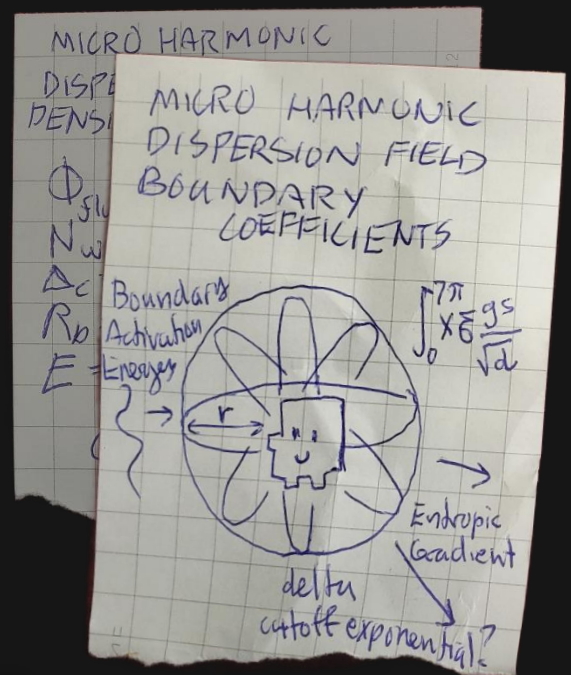 MICRO HARMONIC
DISPE
DENSI
Φflu
Nw
Δc
Rb
E =
MICRO HARMONIC
DISPERSION FIELD
BOUNDARY
COEFFICIENTS
Boundary
Activation
Energies
r
∫₀⁷π xξ gs/√d
Entropic
Gradient
delta
cutoff exponential?